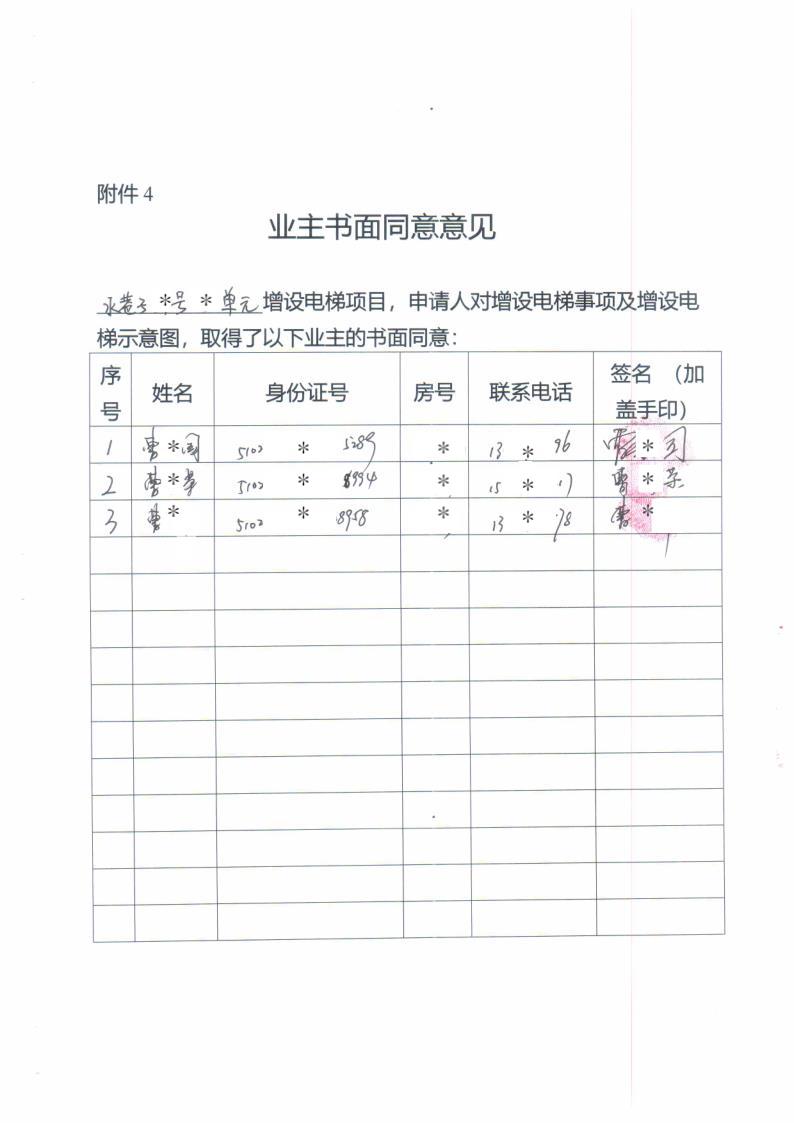 附件 4
业主书面同意意见
水巷子 *号 * 单元 增设电梯项目，申请人对增设电梯事项及增设电
梯示意图，取得了以下业主的书面同意：
序号 姓名 身份证号 房号 联系电话 签名 （加盖手印）
1 曹*国 5102 * 5289 * 13 * 96 *
2 曹* 5102 * 8994 * 15 * 17 曹*
3 曹* 5102 * 8958 * 13 * 78 曹*